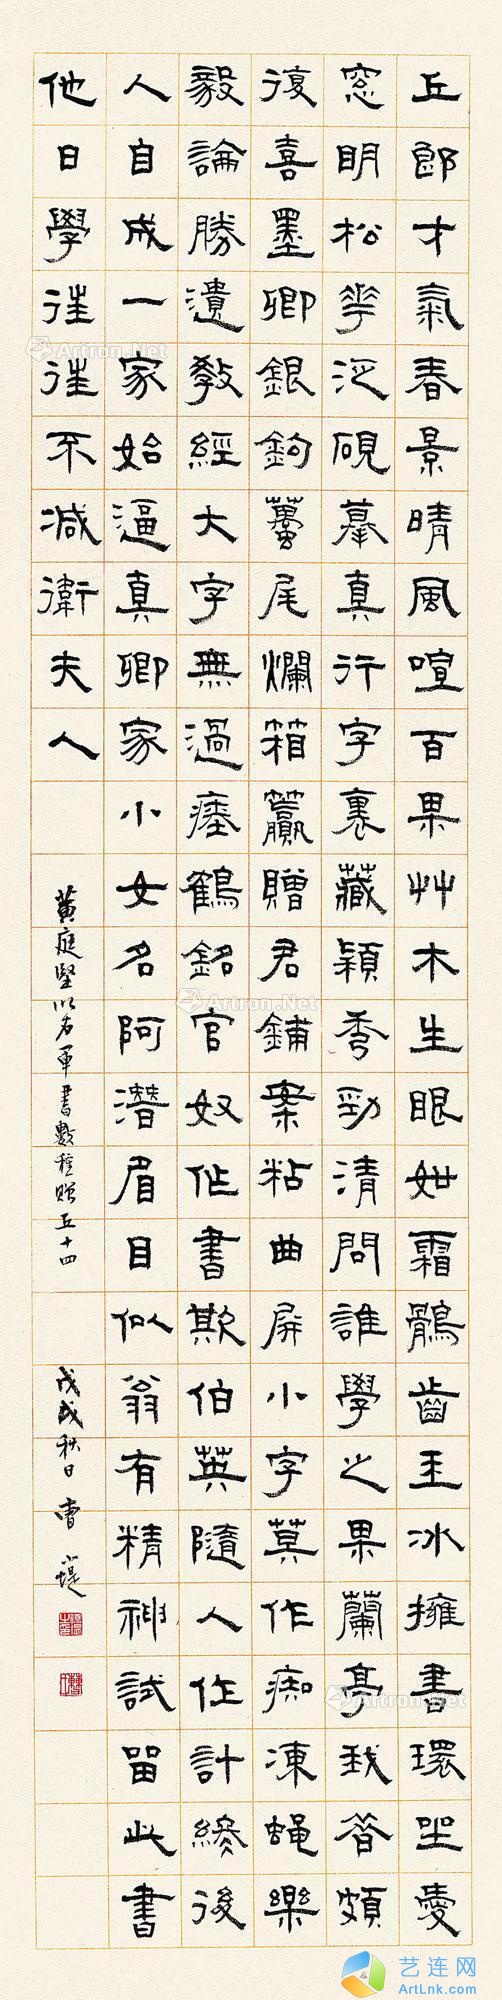 丘郎才氣春景晴風喧百果艸木生眼如霜鶻齒玉冰擁書環坐愛
窓明松華泛硯摹真行字裏藏穎秀勁清問誰學之果蘭亭我昔頗
復喜墨卿銀鉤蠆尾爛箱籯贈君鋪案粘曲屏小字莫作痴凍蠅樂
毅論勝遺教經大字無過瘞鶴銘官奴作書欺伯英隨人作計終後
人自成一家始逼真卿家小女名阿潛眉目似翁有精神試留此書
他日學往往不減衛夫人
黄庭堅以右軍書數種贈丘十四
戊戌秋日曹
Artron.Net
Artron.Net
Artron.Net
艺连网
ArtLnk.com